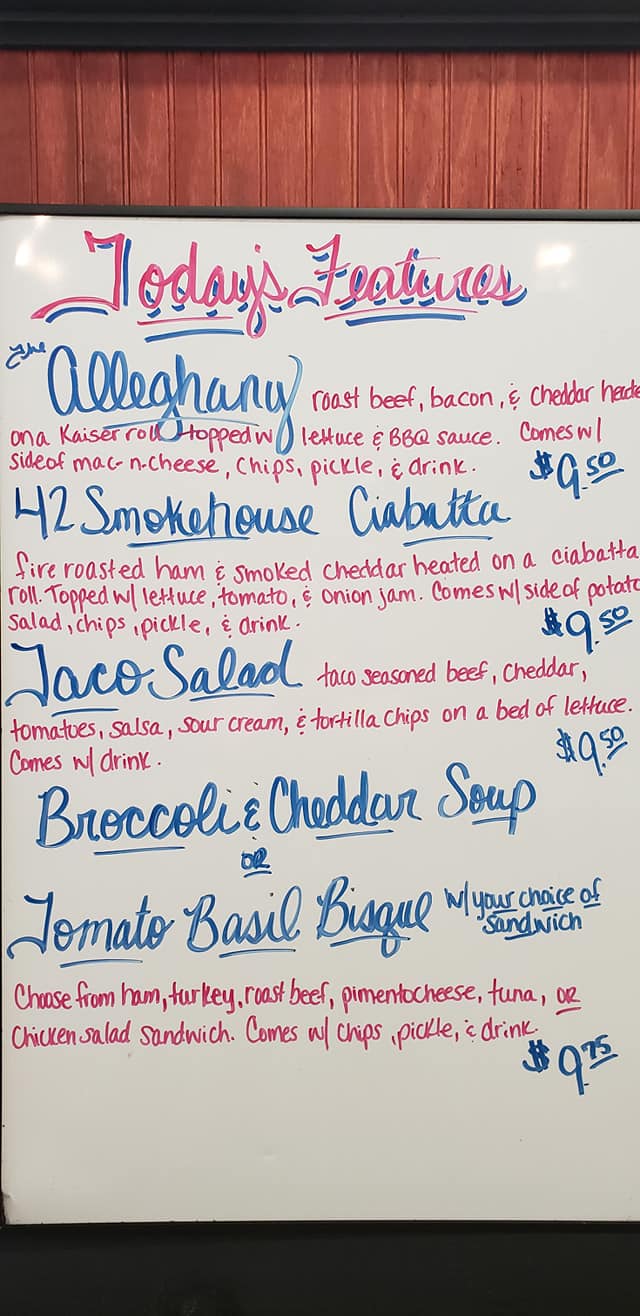 Today's Features
The Alleghany roast beef, bacon, & cheddar heate
on a Kaiser roll topped w/ lettuce & BBQ sauce. Comes w/
side of mac-n-cheese, chips, pickle, & drink. $9.50
42 Smokehouse Ciabatta
fire roasted ham & smoked cheddar heated on a ciabatta
roll. Topped w/ lettuce, tomato, & onion jam. Comes w/ side of potato
salad, chips, pickle, & drink. $9.50
Taco Salad taco seasoned beef, cheddar,
tomatoes, salsa, sour cream, & tortilla chips on a bed of lettuce.
Comes w/ drink. $9.50
Broccoli & Cheddar Soup
OR
Tomato Basil Bisque w/ your choice of
sandwich
Choose from ham, turkey, roast beef, pimento cheese, tuna, OR
Chicken salad sandwich. Comes w/ chips, pickle, & drink.
$9.75